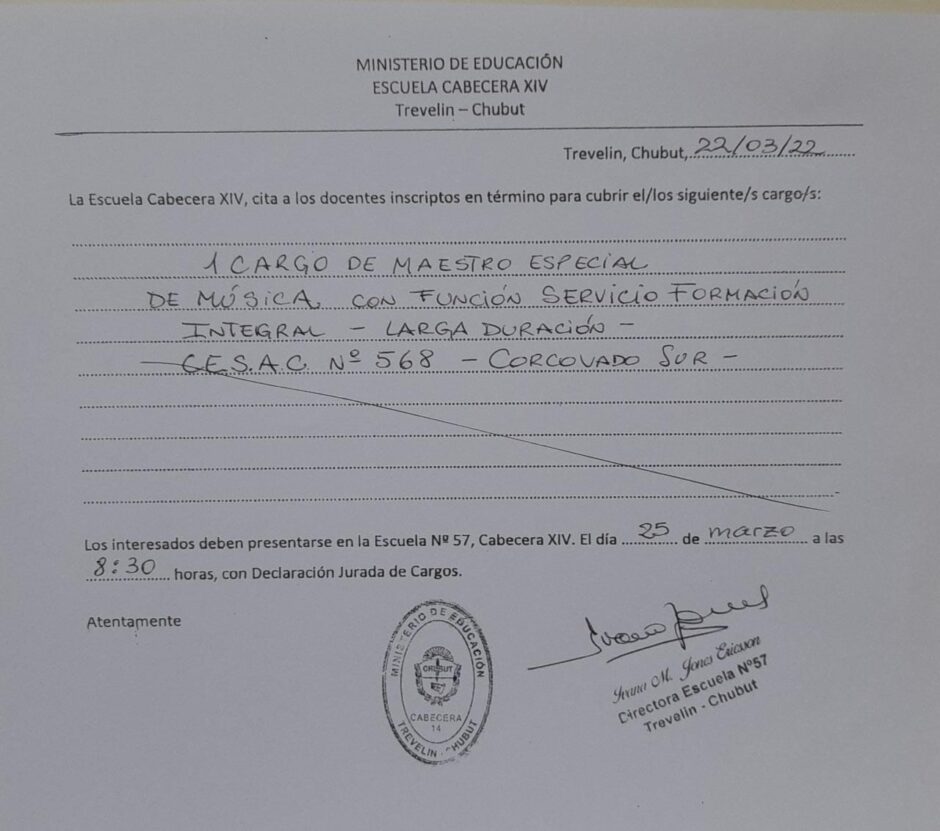 MINISTERIO DE EDUCACIÓN
ESCUELA CABECERA XIV
Trevelin – Chubut
Trevelin, Chubut, 22/03/22
La Escuela Cabecera XIV, cita a los docentes inscriptos en término para cubrir el/los siguiente/s cargo/s:
1 CARGO DE MAESTRO ESPECIAL
DE MÚSICA, CON FUNCIÓN SERVICIO FORMACIÓN
INTEGRAL – LARGA DURACIÓN –
C.E.S.A.C. Nº 568 – CORCOVADO SUR –
Los interesados deben presentarse en la Escuela Nº 57, Cabecera XIV. El día 25 de marzo a las
8:30 horas, con Declaración Jurada de Cargos.
Atentamente
MINISTERIO DE EDUCACIÓN
CHUBUT
CABECERA
14
TREVELIN - CHUBUT
Ivana M. Jones Ericson
Directora Escuela Nº57
Trevelin - Chubut